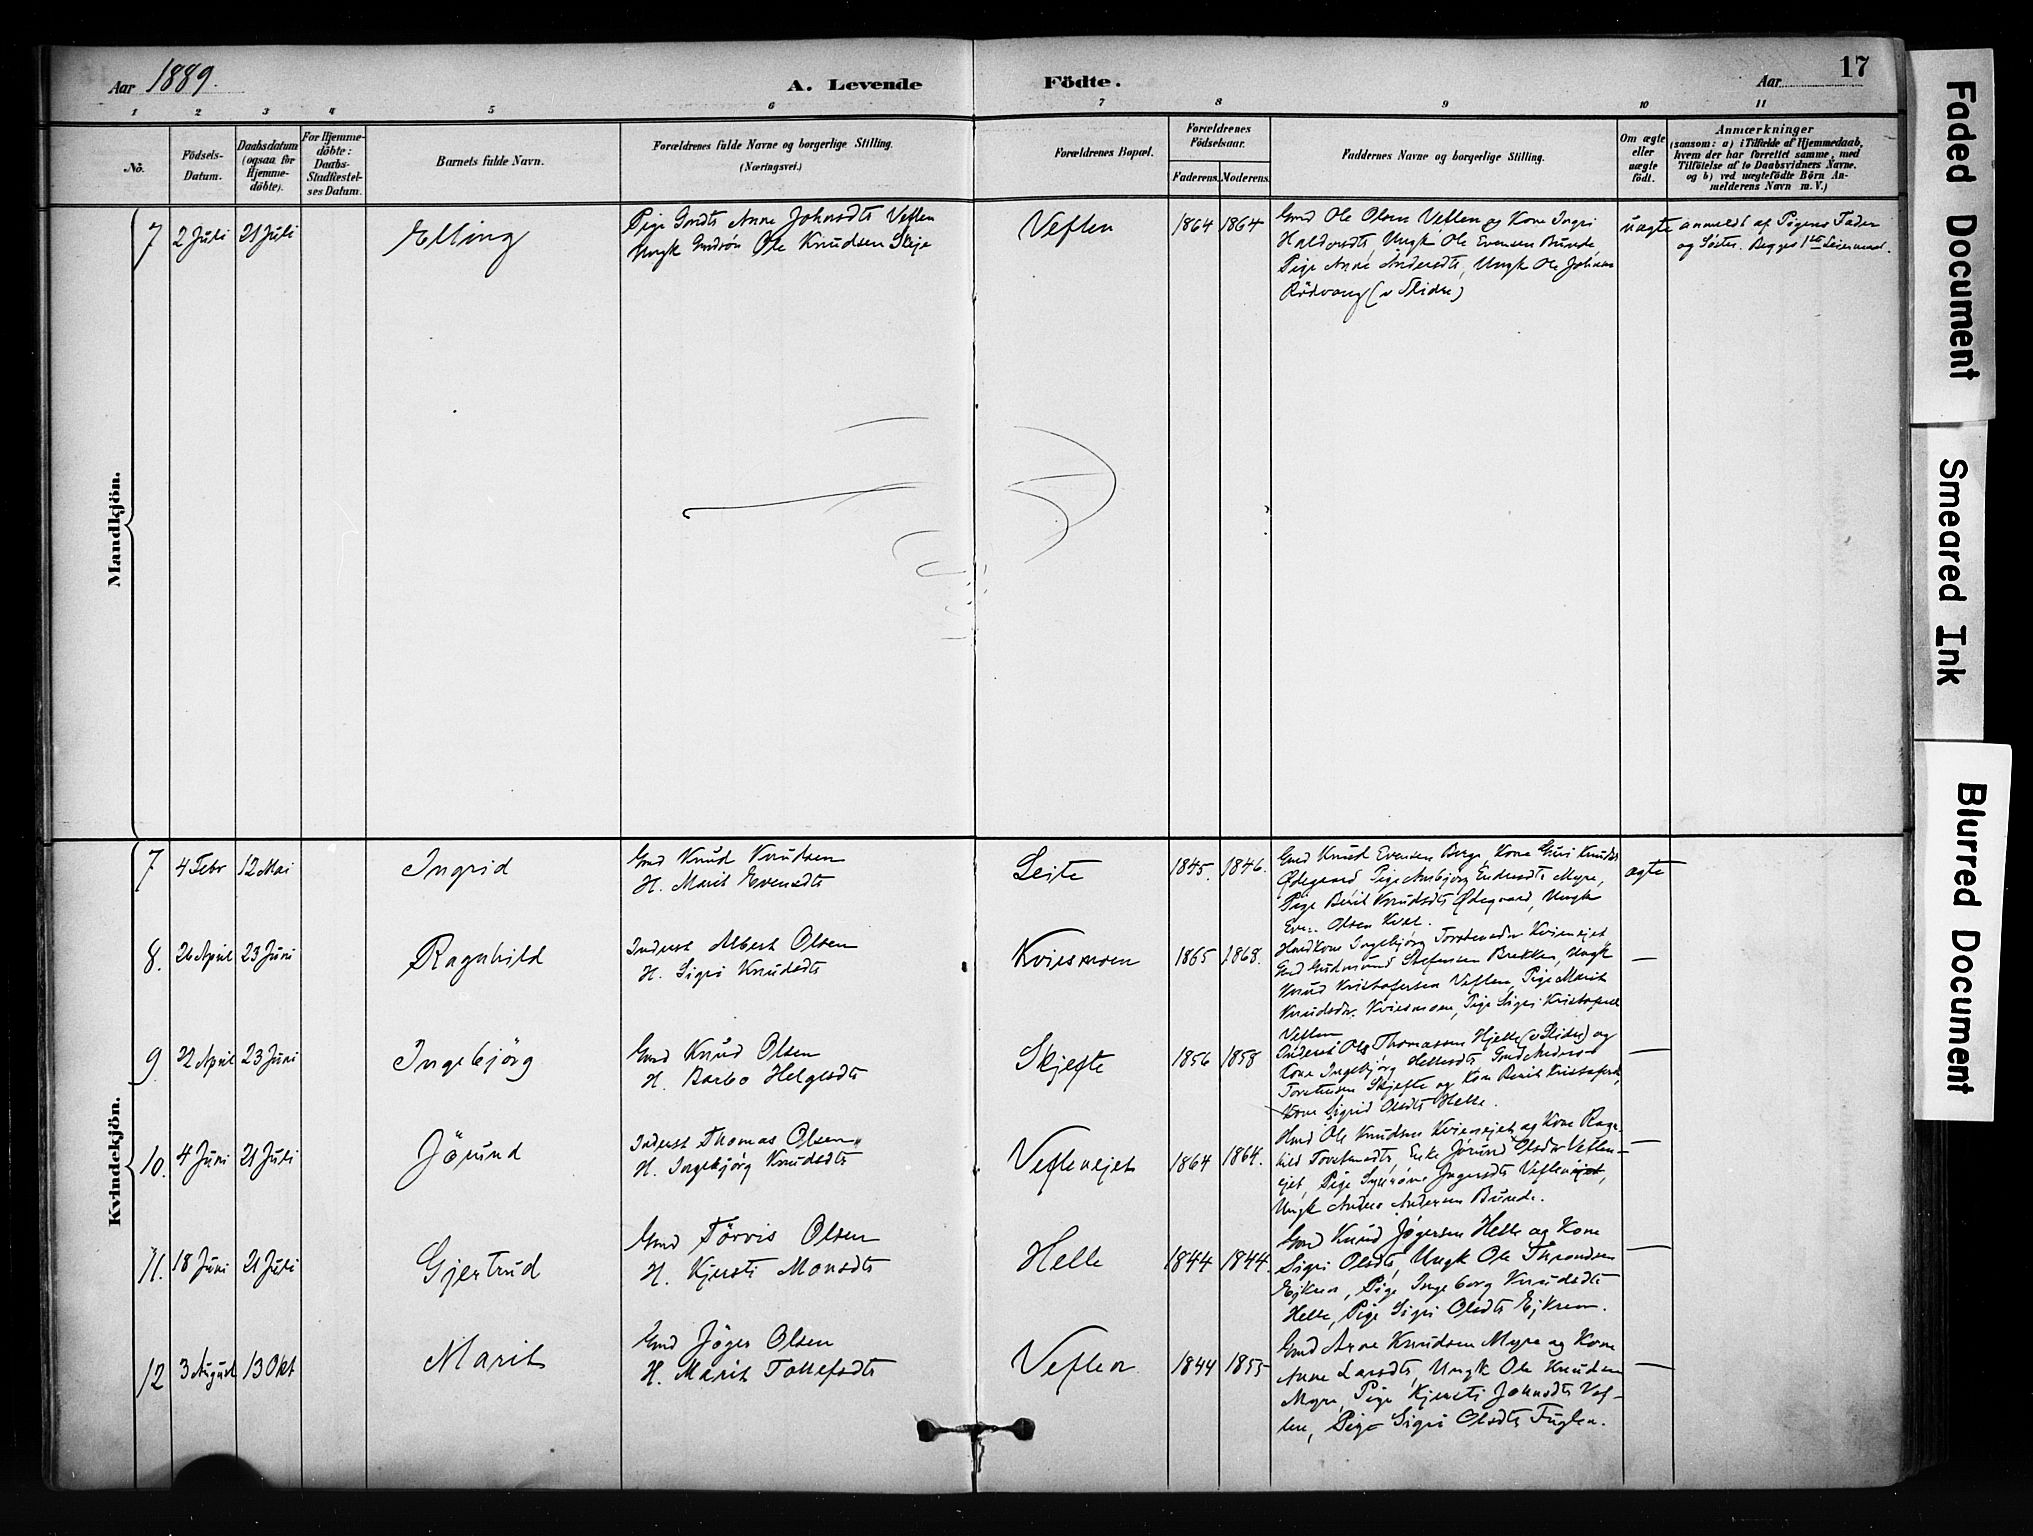 Aar 1889.
A. Levende Födte.
Aar 17
1 2 3 4 5 6 7 8 9 10 11
No.
Födsels-Datum.
Daabsdatum (ogsaa for Hjemme-döbte).
For Hjemme-döbte: Daabs-Stadfæstelses Datum.
Barnets fulde Navn.
Forældrenes fulde Navne og borgerlige Stilling.
(Næringsvei.)
Forældrenes Bopæl.
Forældrenes Födselsaar.
Faderens. Moderens.
Faddernes Navne og borgerlige Stilling.
Om ægte eller uægte födt.
Anmærkninger
(saasom: a) i Tilfælde af Hjemmedaab,
hvem der har forrettet samme, med
Tilföielse af to Daabsvidners Navne.
og b) ved uægtefödte Börn An-
melderens Navn m. V.)
Mandkjön.
7 2 Juli 21 Juli Elling
Pige Anne Johnsdts Veflen
Ungk Ole Knudsen Skje
Veflen 1864 1864
Gmd Ole Olsen Veflen og Kone Ingri
Haldorsdts Ungk Ole Evensen Bunde
Pige Anne Andersdts, Ungk Ole Johnsen
Rödvang (v Slidre)
uægte
anmeldt af Pigens Fader
og Søster. Begges 1ste Leiermaal.
Kvindekjön.
7 4 Febr 12 Mai Ingrid
Gmd Knud Knudsen
H. Marit Evensdts
Leite 1845. 1846.
Gmd Knud Evensen Berge, Kone Guri Knudsd
Ødegaard Pige Ambjörg Endresdts Myre,
Pige Berit Knudsdts Ødegaard, Ungk
Olsen
ægte
8. 26 April 23 Juni Ragnhild
Inderst Albert Olsen
H. Sigri Knudsdts
Kviesmoen 1865 1868.
Huskone Ingebjörg Torstensdr Kviensejet
Gmd Gudmund Stefensen Brekken, Ungk
Knud Kristofersen Veflen, Pige Marit
Knudsdr. Kviesmoen, Pige Sigri Kristofersd
Veflen
—
9. 22 April 23 Juni Ingebjörg
Gmd Knud Olsen
H. Barbo Helgesdts
Skjefte 1856 1858
Inderst Ole Thomassen Hjelle (v Slidre) og
Kone Ingebjörg Hellesdts Gmd Anders
Torstensen Skjefte og Kone Berit Kristofersd,
Kone Sigrid Olsdts Helle.
—
10. 4 Juni 21 Juli Jörund
Inderst Thomas Olsen
H. Ingebjörg Knudsdts
Veflenejet 1864 1864.
Husmd Ole Knudsen Kviensejet og Kone Ragn-
hild Torstensdts, Enke Jörund Olsdr Veflen-
ejet, Pige Synnöve Ingersdts Veflenejet,
Ungk Anders Andersen Bunde.
—
11. 18 Juni 21 Juli Gjertrud
Gmd Törris Olsen
H. Kjersti Monsdts
Helle 1844 1844.
Gmd Knud Jögersen Helle og Kone
Sigri Olsdts, Ungk Ole Throndsen
Ejkren, Pige Ingeborg Knudsdts
Helle, Pige Sigri Olsdts Ejkren.
—
12 3 August 13 Okt Marit
Gmd Jöger Olsen
H. Marit Tollefsdts
Veflen 1844 1855
Gmd Arne Knudsen Myre og Kone
Anne Larsdts, Ungk Ole Knudsen
Myre, Pige Kjersti Johnsdts Vef-
len, Pige Sigri Olsdts Fuglen.
—
Faded Document
Smeared Ink
Blurred Document